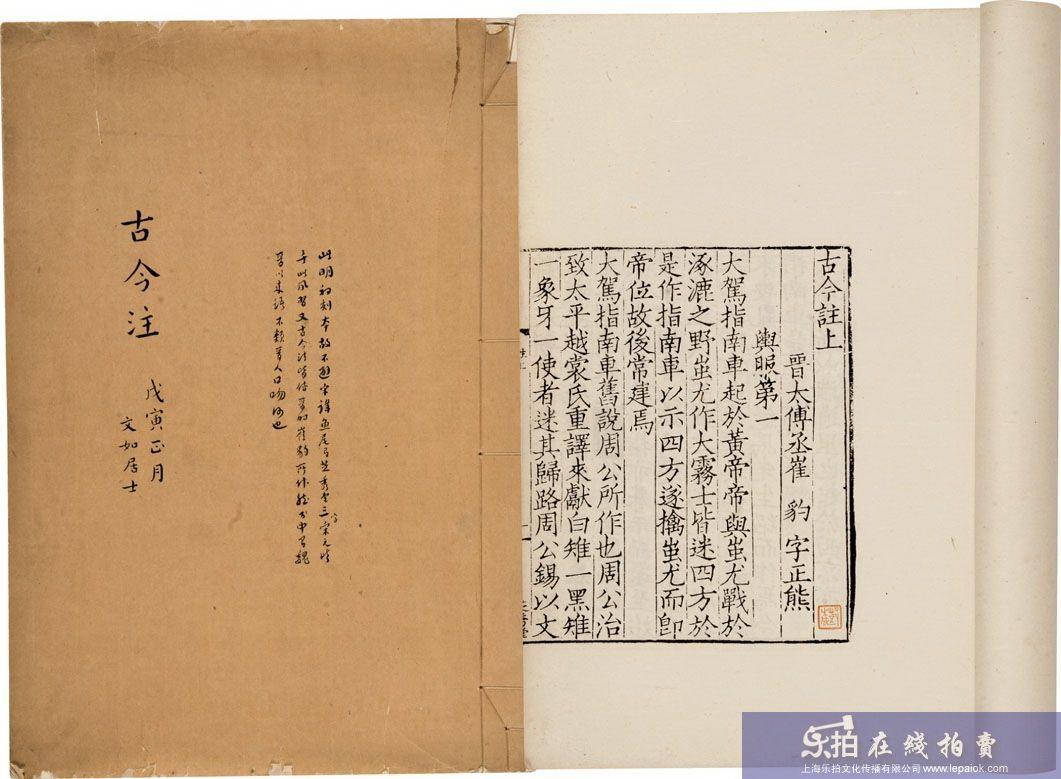 古今注
戊寅正月
文如居士
此明初刻本故不避宋諱魚尾有芝秀堂三字宋元時
此風習又古今注皆傳崔豹所作書中有魏
晉以來語不類晉人口吻何也
古今註上
晋太傅丞崔 豹 字正熊
輿服第一
大駕指南車起於黃帝帝與蚩尤戰於
涿漉之野蚩尤作大霧士皆迷四方於
是作指南車以示四方遂擒蚩尤而卽
帝位故後常建焉
大駕指南車舊說周公所作也周公治
致太平越裳氏重譯來獻白雉一黑雉
一象牙一使者迷其歸路周公錫以文
乐拍在线拍賣
上海乐拍文化传播有限公司 www.lepaiok.com